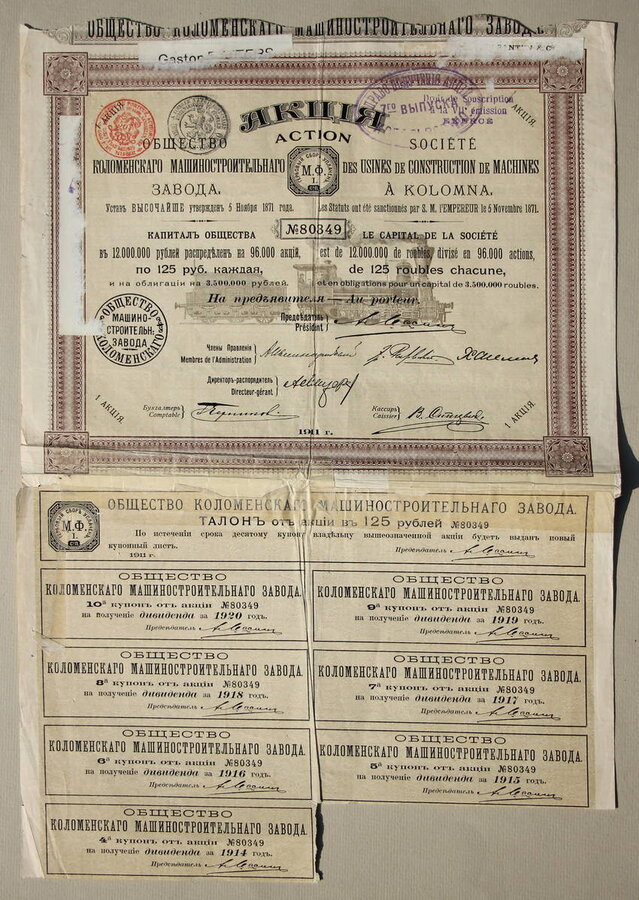 ОБЩЕСТВО КОЛОМЕНСКАГО МАШИНОСТРОИТЕЛЬНАГО ЗАВОДА
Gaston
АКЦІЯ
ACTION
2го ВЫПУСКА
Souscription
émission
1 АКЦІЯ.
ОБЩЕСТВО
КОЛОМЕНСКАГО МАШИНОСТРОИТЕЛЬНАГО
ЗАВОДА.
SOCIÉTÉ
DES USINES DE CONSTRUCTION DE MACHINES
À KOLOMNA.
М.Ф.
Уставъ ВЫСОЧАЙШЕ утвержденъ 5 Ноября 1871 года.
Les Statuts ont été sanctionnés par S. M. l'EMPEREUR le 5 Novembre 1871.
№80349
КАПИТАЛЪ ОБЩЕСТВА
въ 12.000.000 рублей распредѣленъ на 96.000 акцій,
по 125 руб. каждая,
и на облигаціи на 3.500.000 рублей.
LE CAPITAL DE LA SOCIÉTÉ
est de 12.000.000 de roubles, divisé en 96.000 actions,
de 125 roubles chacune,
et en obligations pour un capital de 3.500.000 roubles.
На предъявителя — Au porteur.
ОБЩЕСТВО
МАШИНО-
СТРОИТЕЛЬН:
ЗАВОДА
КОЛОМЕНСКАГО
Предсѣдатель
Président
Члены Правленія
Membres de l'Administration
Директоръ-распорядитель
Directeur-gérant
1 АКЦІЯ.
Бухгалтеръ
Comptable
Кассиръ
Caissier
1 АКЦІЯ.
1911 г.
М.Ф.
ОБЩЕСТВО КОЛОМЕНСКАГО МАШИНОСТРОИТЕЛЬНАГО ЗАВОДА.
ТАЛОНЪ отъ акціи въ 125 рублей №80349
По истеченіи срока десятому купону владѣльцу вышеозначенной акціи будетъ выданъ новый
купонный листъ.
1911 г.
Предсѣдатель
ОБЩЕСТВО
КОЛОМЕНСКАГО МАШИНОСТРОИТЕЛЬНАГО ЗАВОДА.
10й купонъ отъ акціи №80349
на полученіе дивиденда за 1920 годъ.
Предсѣдатель
ОБЩЕСТВО
КОЛОМЕНСКАГО МАШИНОСТРОИТЕЛЬНАГО ЗАВОДА.
9й купонъ отъ акціи №80349
на полученіе дивиденда за 1919 годъ.
Предсѣдатель
ОБЩЕСТВО
КОЛОМЕНСКАГО МАШИНОСТРОИТЕЛЬНАГО ЗАВОДА.
8й купонъ отъ акціи №80349
на полученіе дивиденда за 1918 годъ.
Предсѣдатель
ОБЩЕСТВО
КОЛОМЕНСКАГО МАШИНОСТРОИТЕЛЬНАГО ЗАВОДА.
7й купонъ отъ акціи №80349
на полученіе дивиденда за 1917 годъ.
Предсѣдатель
ОБЩЕСТВО
КОЛОМЕНСКАГО МАШИНОСТРОИТЕЛЬНАГО ЗАВОДА.
6й купонъ отъ акціи №80349
на полученіе дивиденда за 1916 годъ.
Предсѣдатель
ОБЩЕСТВО
КОЛОМЕНСКАГО МАШИНОСТРОИТЕЛЬНАГО ЗАВОДА.
5й купонъ отъ акціи №80349
на полученіе дивиденда за 1915 годъ.
Предсѣдатель
ОБЩЕСТВО
КОЛОМЕНСКАГО МАШИНОСТРОИТЕЛЬНАГО ЗАВОДА.
4й купонъ отъ акціи №80349
на полученіе дивиденда за 1914 годъ.
Предсѣдатель